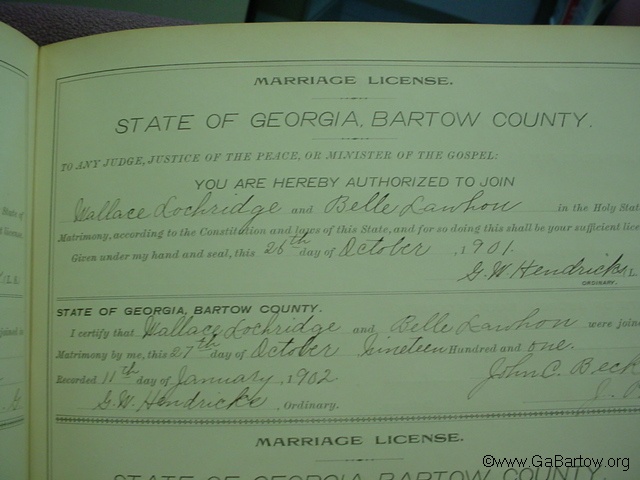 MARRIAGE LICENSE.
STATE OF GEORGIA, BARTOW COUNTY.
TO ANY JUDGE, JUSTICE OF THE PEACE, OR MINISTER OF THE GOSPEL:
YOU ARE HEREBY AUTHORIZED TO JOIN
Wallace Lochridge and Belle Lawhon in the Holy Stat
Matrimony, according to the Constitution and laws of this State, and for so doing this shall be your sufficient lice
Given under my hand and seal, this 26th day of October, 1901.
G. W. Hendricks L.
ORDINARY.
STATE OF GEORGIA, BARTOW COUNTY.
I certify that Wallace Lochridge and Belle Lawhon were joine
Matrimony by me, this 27th day of October Nineteen Hundred and one.
Recorded 11th day of January, 1902 John C. Beck
G. W. Hendricks, Ordinary. J.
MARRIAGE LICENSE.
STATE OF GEORGIA, BARTOW COUNTY
©www.GaBartow.org